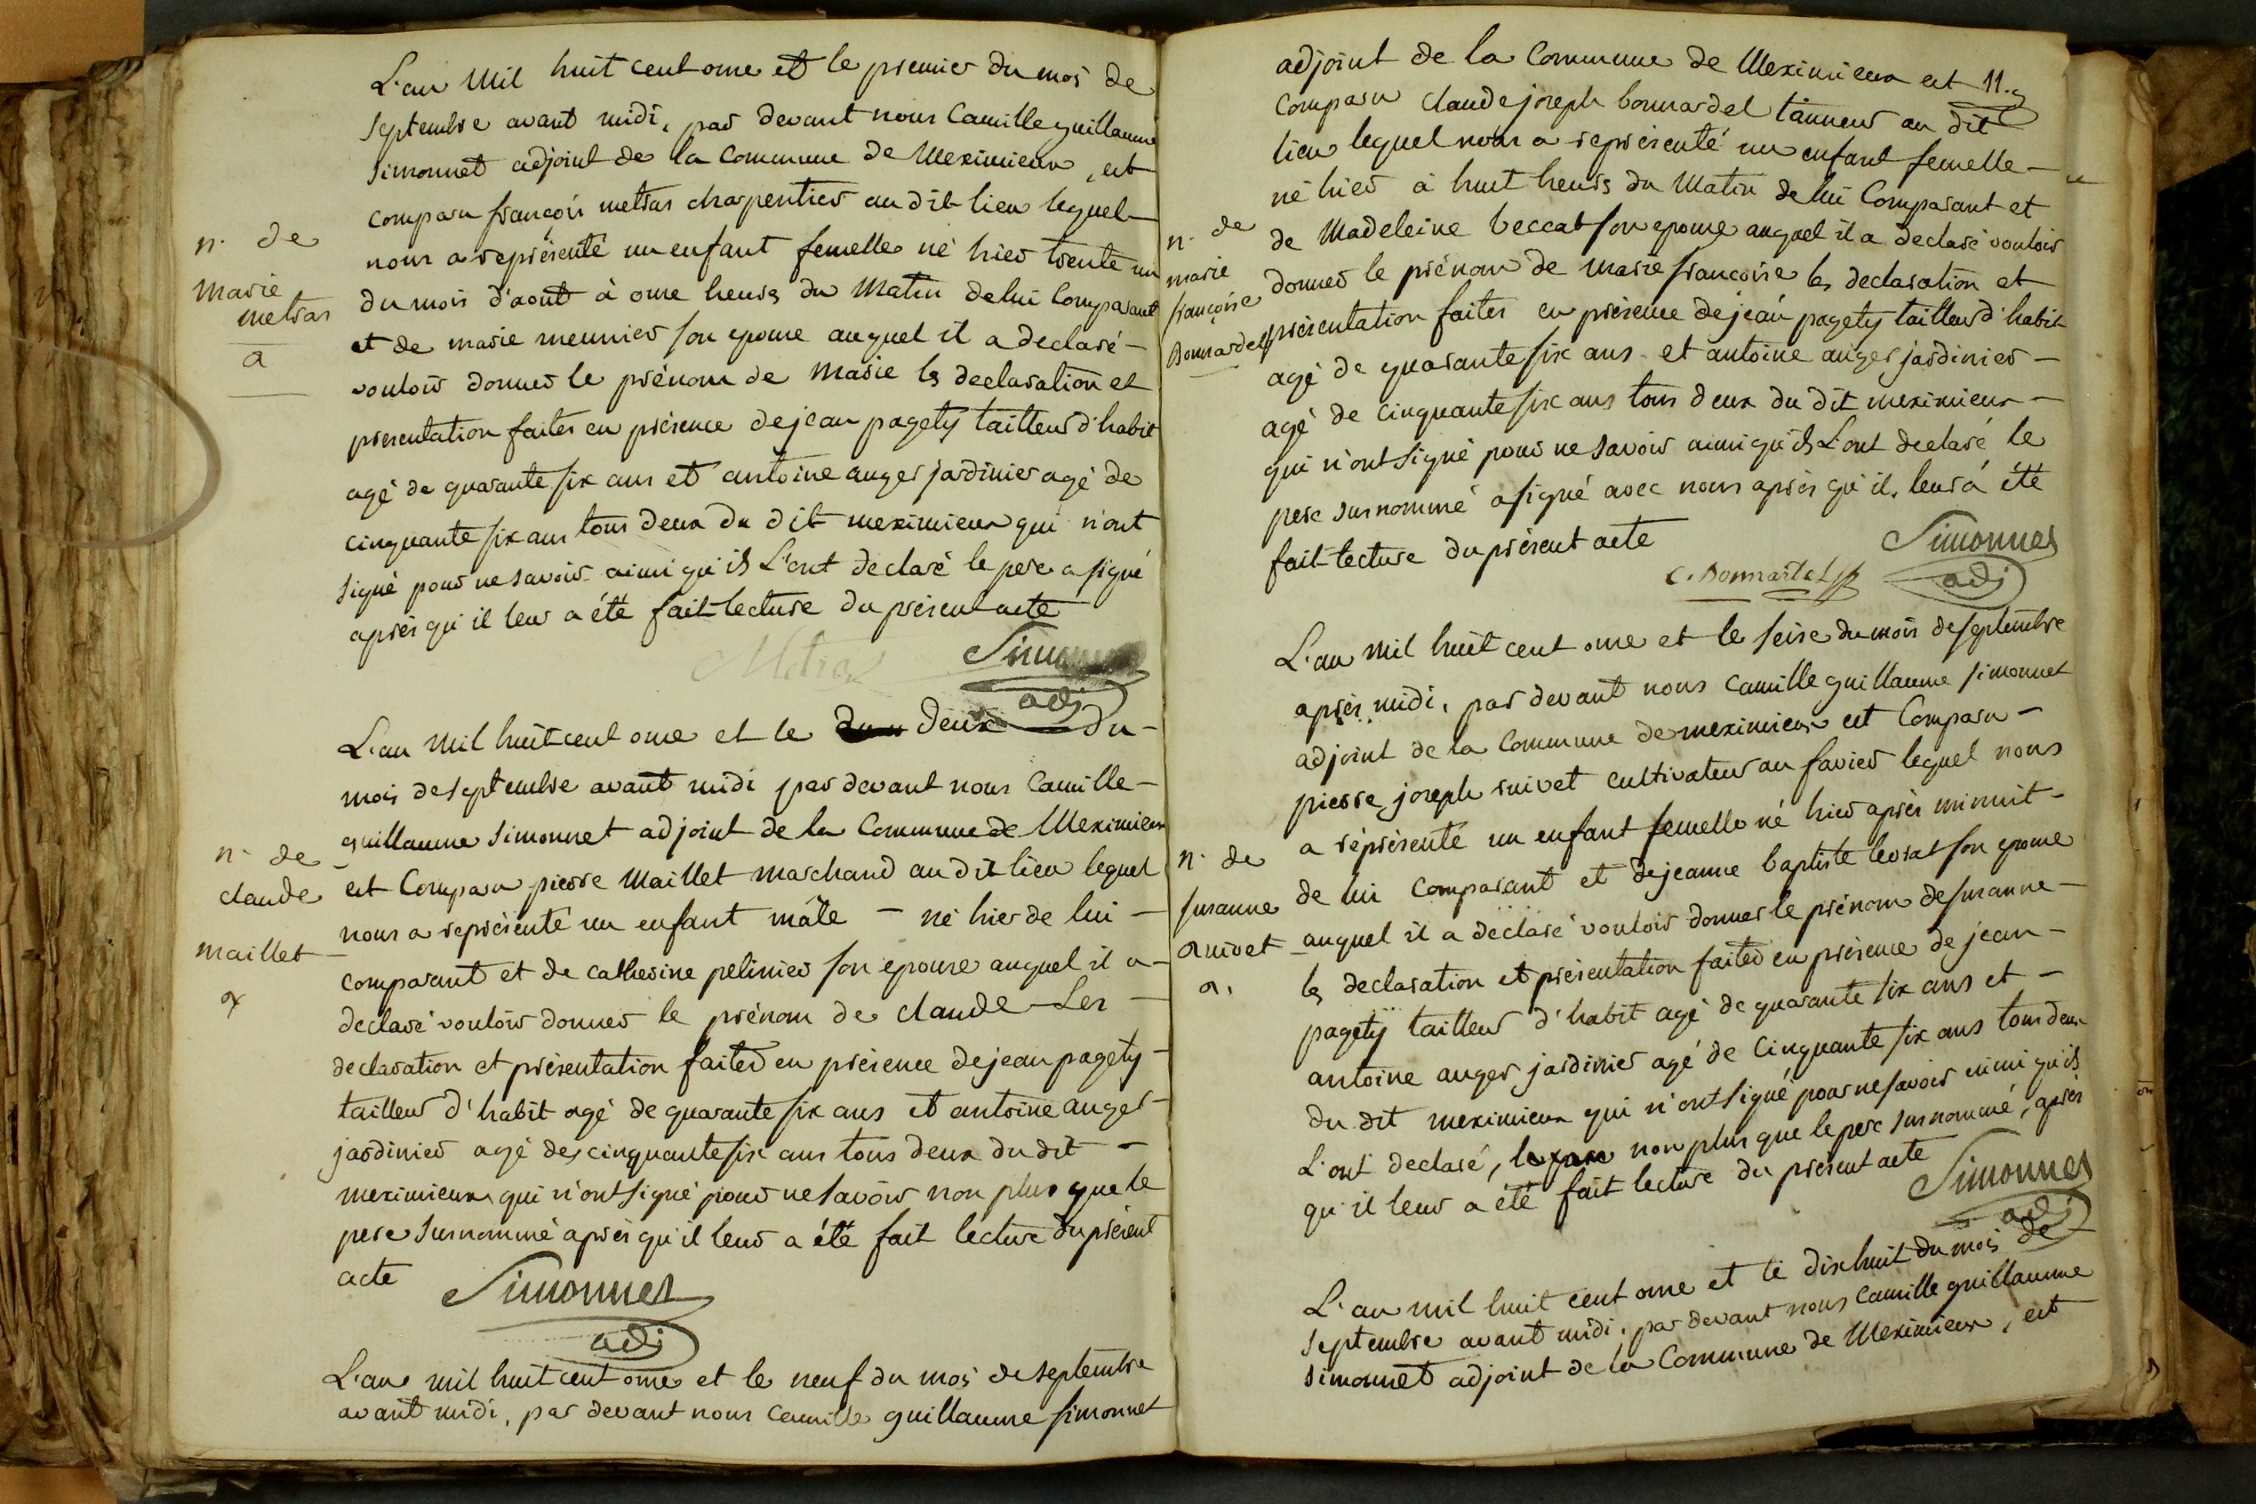 L'an mil huit cent onze et le premier du mois de
septembre avant midi, par devant nous Camille guillaume
simonnet adjoint de la Commune de Meximieux, est
comparu françois metras charpentier au dit lieu lequel
n. de
marie
metras
a
nous a représenté un enfant femelle né hier trente un
du mois d'août à onze heures du Matin de lui Comparant
et de marie meunier son epouse auquel il a declaré —
vouloir donner le prénom de Marie les declaration et
presentation faites en présence de jean pagety tailleur d'habit
agé de quarante six ans et antoine auger jardinier agé de
cinquante six ans tous deux du dit meximieux qui n'ont
signé pour ne savoir ainsi qu'ils L'ont declaré le pere a signé
après qu'il leur a été fait lecture du présent acte
Metras Simonnet
adj
L'an mil huit cent onze et le deux du —
mois de septembre avant midi par devant nous Camille —
guillaume simonnet adjoint de la Commune de Meximieux
n. de
claude
maillet
est Comparu pierre Maillet marchand au dit lieu lequel
nous a représenté un enfant mâle — né hier de lui —
comparant et de catherine pelinier son epouse auquel il a —
declaré vouloir donner le prénom de claude — Les —
declaration et présentation faites en présence de jean pagety —
tailleur d'habit agé de quarante six ans et antoine auger —
jardinier agé de cinquante six ans tous deux du dit —
meximieux qui n'ont signé pour ne savoir non plus que le
pere surnommé après qu'il leur a été fait lecture du présent
acte
Simonnet
adj
L'an mil huit cent onze et le neuf du mois de septembre
avant midi, par devant nous Camille guillaume simonnet
adjoint de la Commune de Meximieux est 11.
comparu claude joseph bonnardel tanneur au dit
lieu lequel nous a représenté un enfant femelle —
né hier à huit heures du Matin de lui Comparant et
n. de
marie
françoise
Bonnardel
de Madeleine beccat son epouse auquel il a declaré vouloir
donner le prénom de marie françoise les declaration et
présentation faites en présence de jean pagety tailleur d'habit
agé de quarante six ans et antoine auger jardinier —
agé de cinquante six ans tous deux du dit meximieux —
qui n'ont signé pour ne savoir ainsi qu'ils L'ont declaré le
pere surnommé a signé avec nous après qu'il leur a été
fait lecture du présent acte
C. Bonnardel Simonnet
adj
L'an mil huit cent onze et le seise du mois de septembre
après midi, par devant nous Camille guillaume simonnet
adjoint de la Commune de meximieux est Comparu —
pierre joseph ruivet cultivateur au favier lequel nous
a réprésenté un enfant femelle né hier après minuit —
n. de
susanne
ruivet
a.
de lui Comparant et de jeanne baptiste levrat son epouse
auquel il a declaré vouloir donner le prénom de susanne —
les declaration et présentation faites en présence de jean —
pagety tailleur d'habit agé de quarante six ans et —
antoine auger jardinier agé de cinquante six ans tous deux
du dit meximieux qui n'ont signé pour ne savoir ainsi qu'ils
L'ont declaré, non plus que le pere surnommé, après
qu'il leur a été fait lecture du présent acte
Simonnet
adj
L'an mil huit cent onze et le dixhuit du mois de
septembre avant midi, par devant nous Camille guillaume
simonnet adjoint de la Commune de Meximieux, est